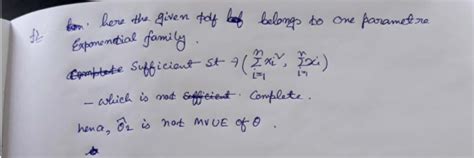 here the given pdf belongs to one parametre
Exponential family.
Sufficient st → (∑ᵢ₌₁ⁿ xᵢ², ∑ᵢ₌₁ⁿ xᵢ)
- which is not Complete.
hence, θ̂₂ is not MVUE of θ.